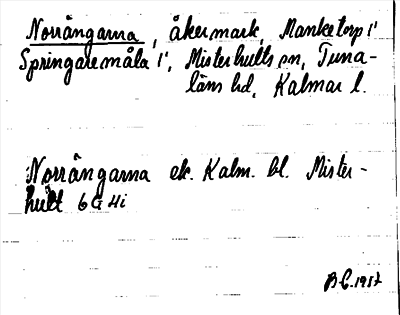 Norrängarna, åkermark, Manketorp 1'
Springaremåla 1', Misterhults sn, Tuna-
läns hd, Kalmar l.
Norrängarna ek. Kalm. bl. Mister-
hult 6G 4i
B.C. 1957